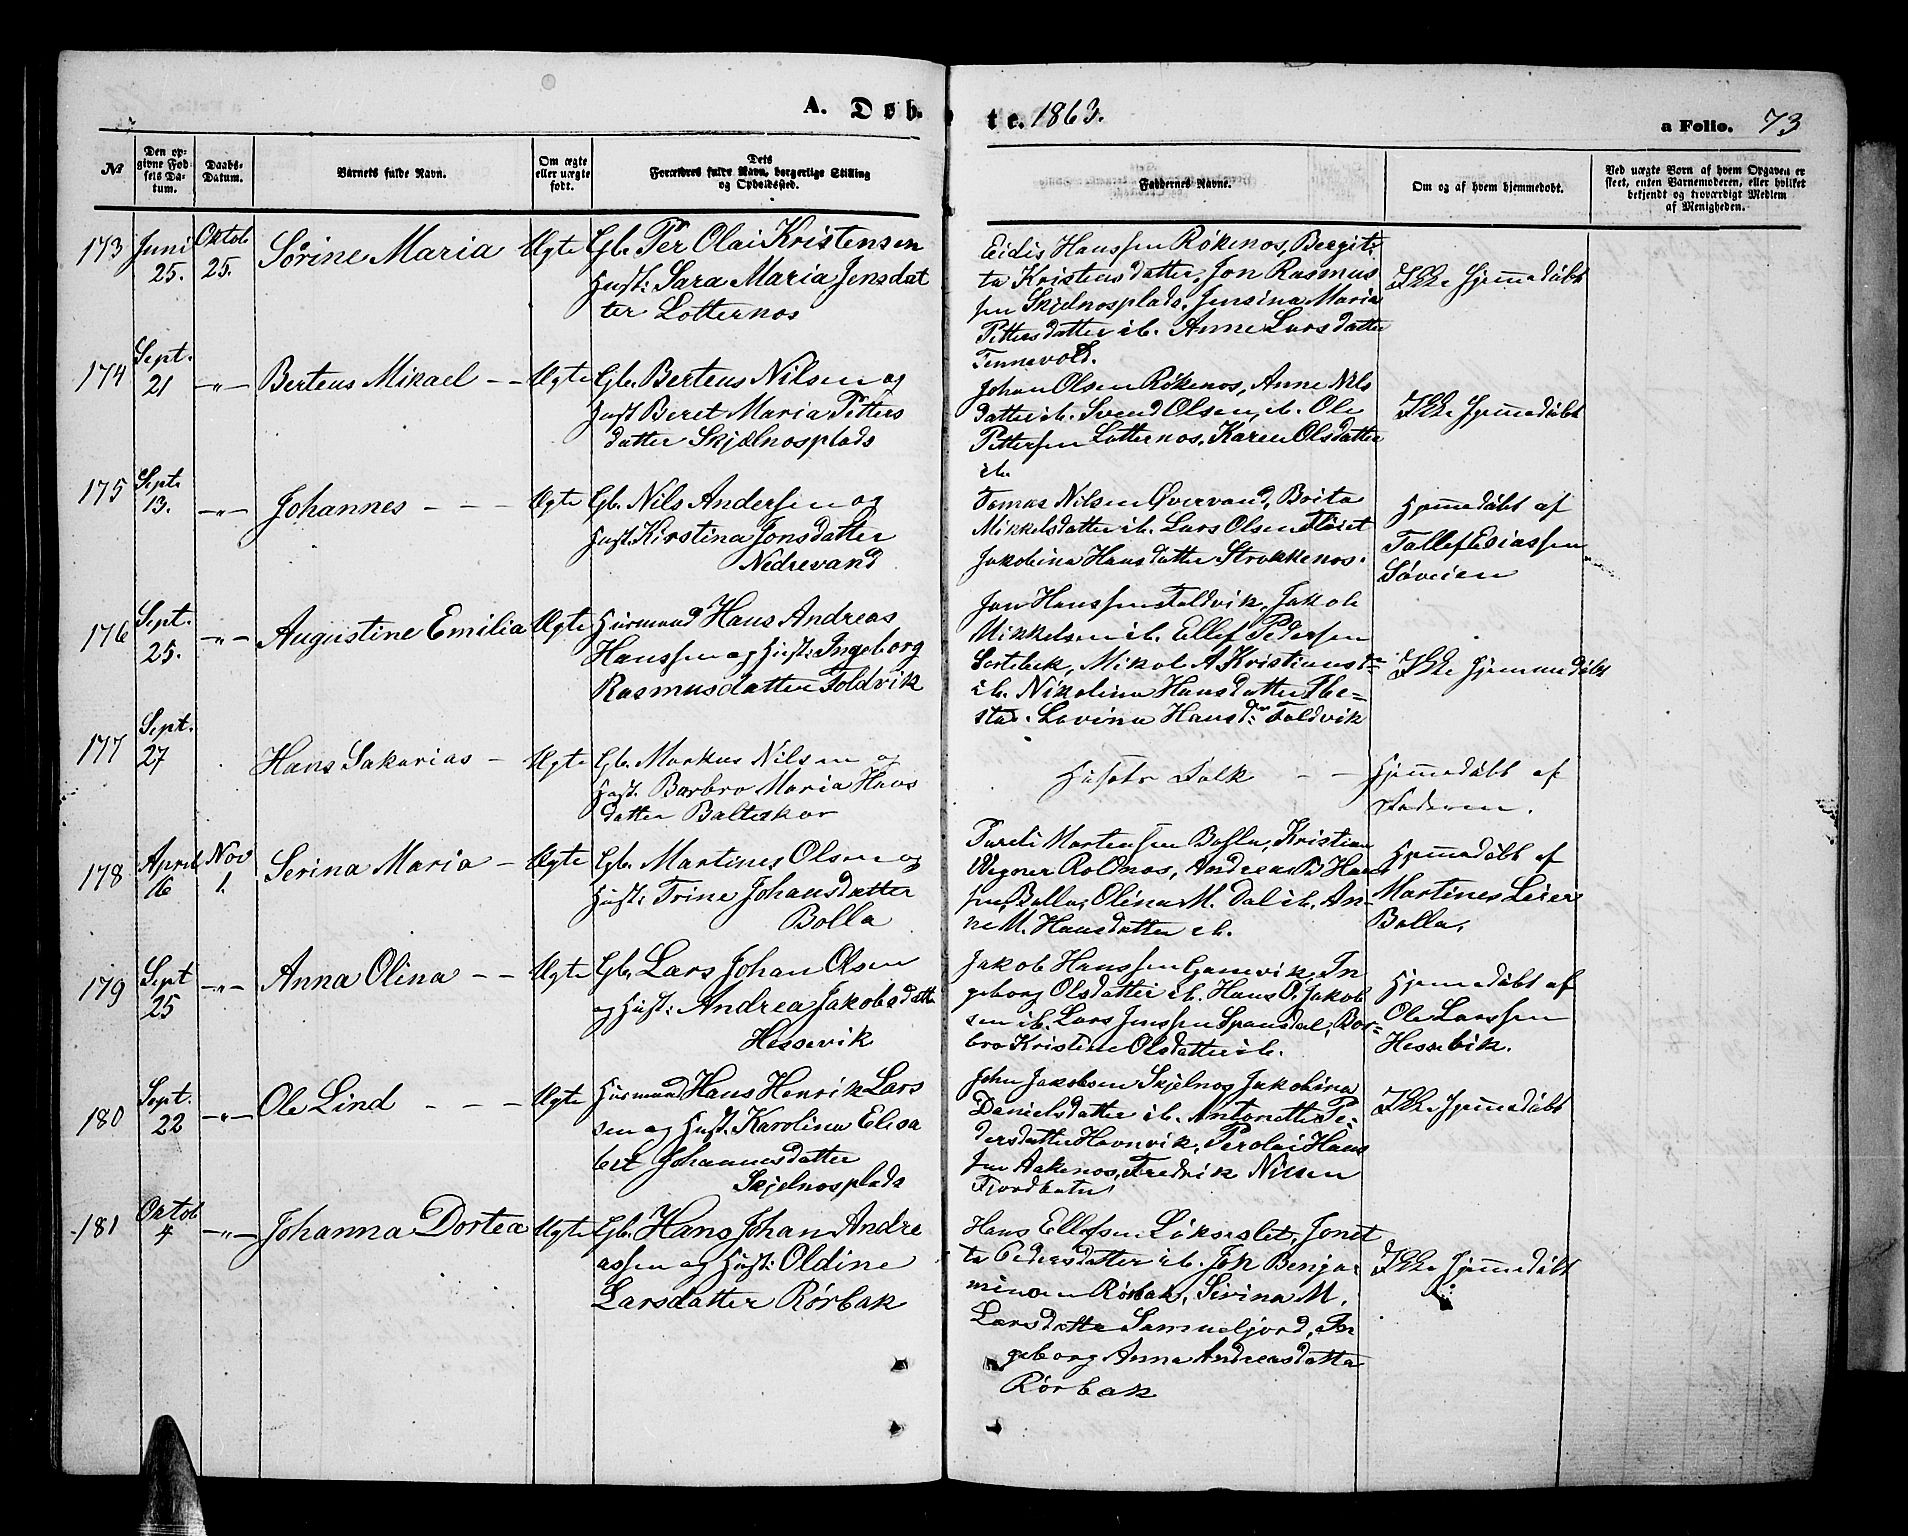 A. Døb- te. 1863. a Folio. 73
№
Den op-
givne Fød-
sels Da-
tum.
Daabs-
Datum.
Barnets fulde Navn.
Om ægte
eller uægte
født.
Dets
Forældres fulde Navn, borgerlige Stilling
og Opholdssted.
Faddernes Navne.
Om og af hvem hjemmedøbt.
Ved uægte Børn af hvem Opgaven er
skeet, enten Barnemoderen, eller hvilket
bekjendt og troværdigt Medlem
af Menigheden.
173 Juni 25. Oktob 25. Sörine Maria Ægte
Gb. Per Olai Kristensen
Hust: Sara Maria Jensdat
ter Lotternos
Eidis Hanssen Rökenos, Bergit-
ta Kristensdatter, Jon Rasmus
sen Skjelnosplads, Jensina Maria
Pettersdatter ib. Anne Larsdatter
Tennevold.
Ikke hjemmedöbt
174 Sept. 21 —"— Berteus Mikael - - Ægte
Gb. Berteus Nilsen og
Hust Beret Maria Petters
datter Skjælnosplads
Johan Olsen Rökenos, Anne Nils
datter ib. Svend Olsen, ib. Ole
Pettersen Lotternos, Karen Olsdatter
ib.
Ikke hjemmedöbt
175 Sept. 13. —"— Johannes - - - Ægte
Gb. Nils Andersen og
Hust. Kirstina Jonsdatter
Nedrevand
Tomas Nilsen Övervand, Brita
Mikkelsdatter ib. Lars Olsen
Jakobina Hansdatter Strokkenos.
Hjemmedöbt af
Tollef Esiassen
Söveien
176 Sept. 25. —"— Augustine Emilia Ægte
Husmand Hans Andreas
Hanssen og Hust: Ingeborg
Rasmusdatter Foldvik
Jon Hanssen Foldvik, Jakob
Mikkelsen ib. Ellef Pedersen
Sortebek, Mikol A Kristiansd
ib. Nikolina Hansdatter Ibe-
stad. Lovina Hansd: Foldvik
Ikke hjemmedöbt
177 Sept. 27 Hans Sakarias - Ægte
Gb. Markus Nilsen og
Hust. Barbro Maria Hans
datter Balteskar
Husets Folk - -
Hjemmedöbt af
Faderen.
178 April 16 Nov 1. Serina Maria - Ægte
Gb. Martines Olsen og
Hust: Trine Johansdatter
Bolla
Mortensen Bolla, Kristian
Wegner Roldnos, Andreas B Hans
sen, Bolla, Olina M. Dal ib. An-
ne M. Hansdatter ib.
Hjemmedöbt af
Martines Leier
Bolla.
179 Sept 25 —"— Anna Olina - - Ægte
Gb. Lars Johan Olsen
og Hust: Andrea Jakobsdatt
Hessevik
Jakob Hanssen Gamvik, In
geborg Olsdatter ib. Hans O. Jakob
sen ib. Lars Jenssen Spansdal, Bar-
bro Kristine Olsdatter ib.
Hjemmedöbt af
Ole Larssen
Hessebik.
180 Sept. 22 —"— Ole Lind - - - Ægte
Husmand Hans Henrik Lars
sen og Hust. Karolina Elisa
bet Johannesdatter
Skjelnosplads
John Jakobsen Skjelnos, Jakobina
Danielsdatter ib. Antonette Pe-
dersdatter Havnvik, Perolai Hans
sen Aakenos, Fredrik Nilsen
Fjordbotn
Ikke hjemmedöbt
181 Oktob 4 —"— Johanna Dortea Ægte
Gb. Hans Johan Andre
assen og Hust: Oldine
Larsdatter Rörbak
Hans Ellefsen Löksaslet, Jonet
ta Pedersdatter ib. Joh Benja-
minsen Rörbak, Serina M.
Larsdatter Samueljord, In
geborg Anna Andreasdatter
Rörbak
Ikke hjemmedöbt